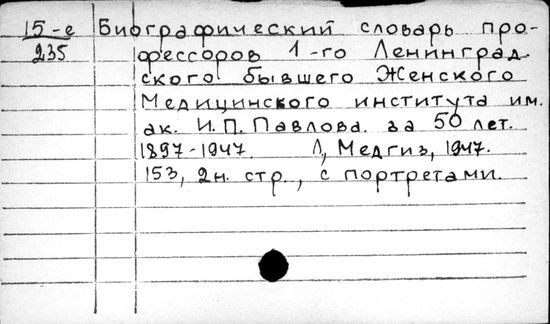 15-е Биографический словарь про-
235 фессоров 1-го Ленинград
ского бывшего Женского
Медицинского института им.
ак. И.П. Павлова. за 50 лет.
1897-1947. Л, Медгиз, 1947.
153, 2н. стр., с портретами.